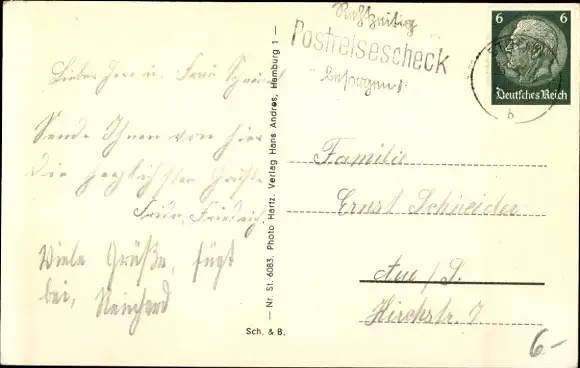 Lieber Herr u. Frau
Sende Ihnen von hier
die herzlichsten Grüße
Friedrich
Viele Grüße, fügt
bei, Reinhard
— Nr. St. 6083. Photo Hartz. Verlag Hans Andres, Hamburg 1 —
Sch. & B.
Rechtzeitig
Postreisescheck
besorgen!
6 6
Deutsches Reich
b
Familie
Ernst Schneider
Aue/S.
Kirchstr. 7
6.-